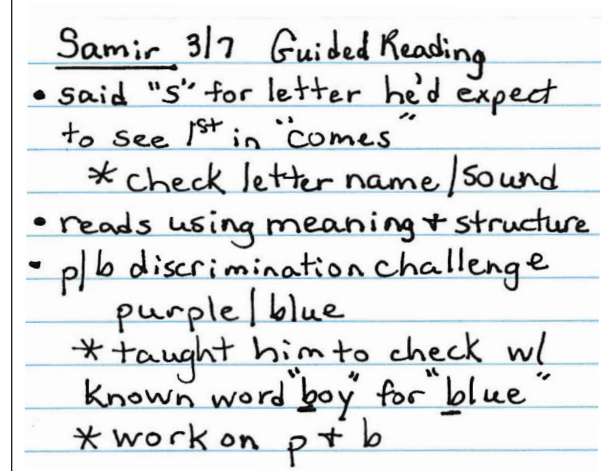 Samir 3/7 Guided Reading
• said "s" for letter he'd expect
to see 1st in "comes"
* check letter name/sound
• reads using meaning + structure
• p/b discrimination challenge
purple/blue
* taught him to check w/
known word "boy" for "blue"
* work on p + b